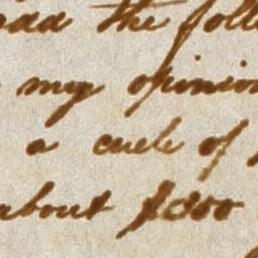 add the foll
my opinion
a cucle of
about